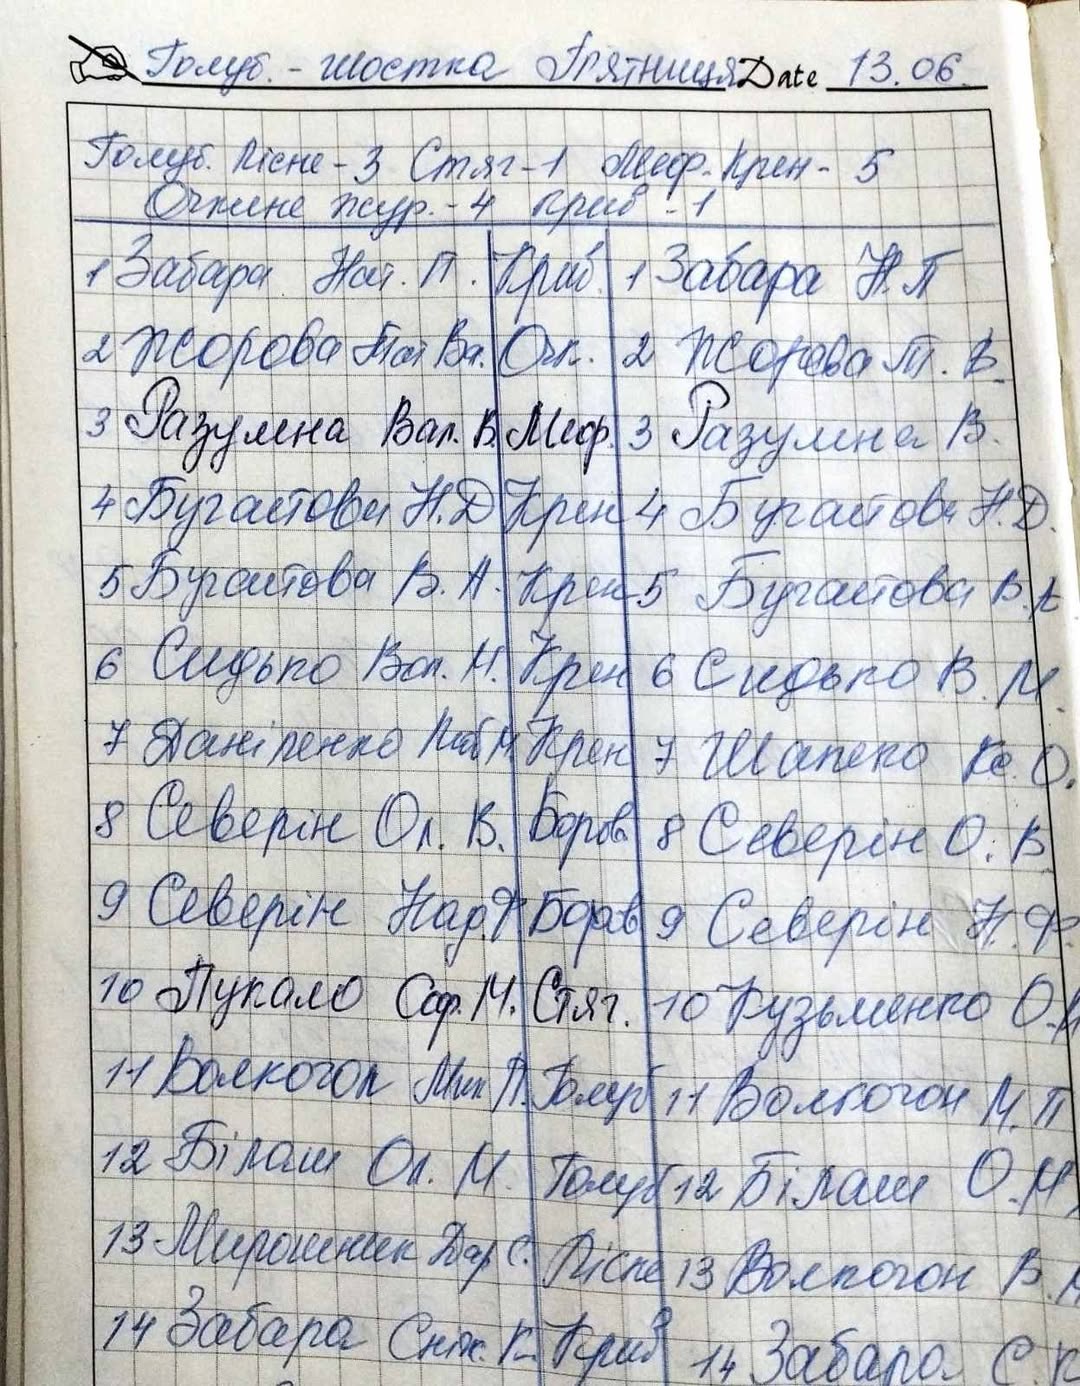 Голуб. - Шостка П'ятниця Date 13.06.
Голуб. Лісне - 3 Стяг - 1 Меф. Крен - 5
Очкине Жур. - 4 Крив - 1
1 Забара Нат. П. Крив. 1 Забара Н.П
2 Жорова Вал. Очк. 2 Жорова Т. В.
3 Разумна Вал. В. Меф. 3 Разумна В.
4 Бугаєтова Н.Д Крен 4 Бугаєтова Н.Д.
5 Бугаєтова В. А. Крен 5 Бугаєтова В.А
6 Сидько Вал. М. Крен 6 Сидько В. М.
7 Даніленко Люб М. Крен 7 Шапеко О.
8 Северін Ол. В. Боров 8 Северін О. В
9 Северін Над. Ф Боров 9 Северін Н. Ф.
10 Пукало Соф. М. Стяг. 10 Кузьменко О.
11 Волкогон Мик П. Голуб 11 Волкогон М. П
12 Білаш Ол. М. Голуб 12 Білаш О. М
13 Мирошник Дар С. Лісне 13 Волкогон В.
14 Забара Сніж. К. Крив 14 Забара С. К